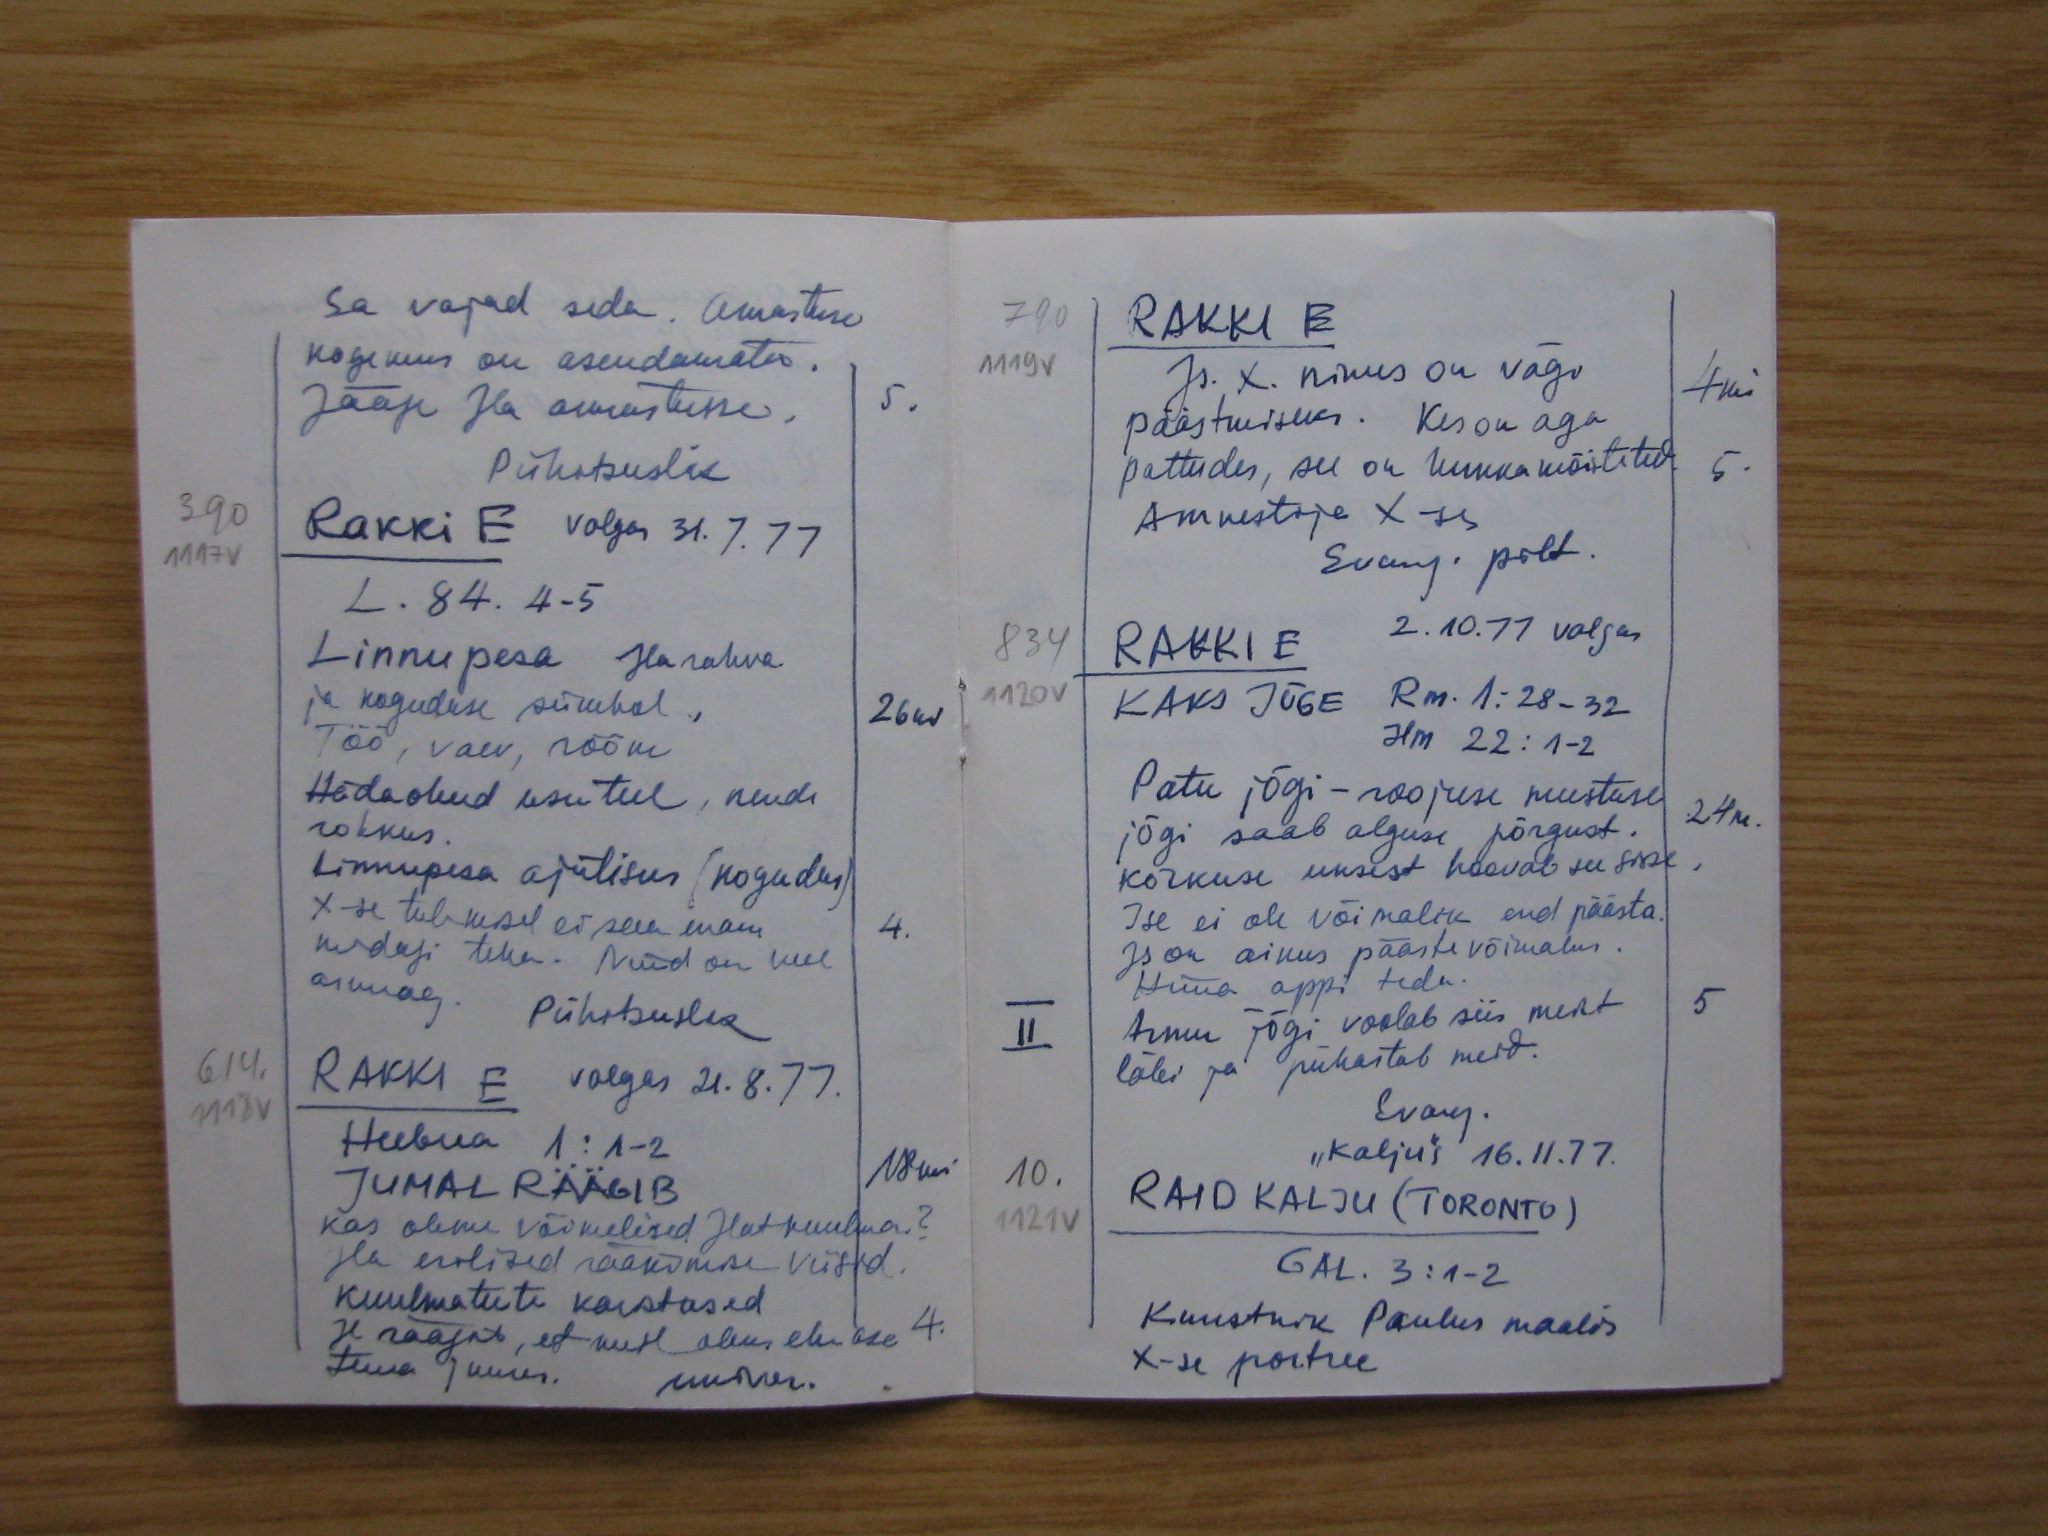 Sa vajad seda. Armastuse
kogemus on asendamatu.
Jääge Jla armastusse. 5.
Pühitsuslik
390
1117v
Rakki E Valgas 31.7.77
L. 84. 4-5
Linnupesa Jla rahva
ja koguduse sümbol. 26 mi
Töö, vaev, rõõm
Hädaohud usuteel, nende
rohkus.
Linnupesa ajutisus (kogudus)
X-se tulemisel ei saa enam 4.
midagi teha. Nüüd on veel
armuaeg.
Pühitsuslik
614.
1118v
RAKKI E Valgas 21.8.77.
Heebrea 1:1-2
JUMAL RÄÄGIB 18 mi
Kas oleme võimelised Jlat kuulma?
Jla erilised rääkimise viisid.
Kuulmatute karistused
Jl räägib, et meil oleks elu ase 4.
Tema juures. univer.
790
1119v
RAKKI E
Js. X. nimes on vägi 4 mi
päästmiseks. Kes on aga
pattudes, see on hukkamõistetud. 5.
Amnestia X-ses
Evang. palt.
834
1120v
2.10.77 Valgas
RAKKI E
KAKS JÕGE Rm. 1:28-32
Jlm 22:1-2
Patu jõgi – roojuse mustuse
jõgi saab alguse põrgust. 24 m.
Kõrkuse uksest hoovab see sisse.
Ise ei ole võimalik end päästa.
Js on ainus päästevõimalus.
Hüüa appi teda.
II
Armu jõgi voolab siis meist 5
läbi ja pühastab meid.
Evang.
„Kaljus" 16.11.77.
10.
1121v
RAID KALJU (TORONTO)
GAL. 3:1-2
Kunstnik Paulus maalis
X-se portree